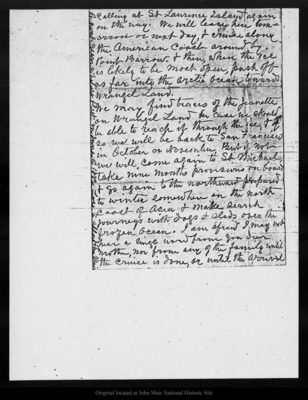 calling at St Lawrence Island again
on the way. We will leave here tom-
orrow or next day, & cruise along
the American Coast around by
Point Barrow & then, when the ice
is likely to be most open, push off
as far into the arctic Ocean toward
Wrangel Land.
We may find traces of the Jeannette
on Wrangel Land in case we should
be able to reach it through the drift ice
so we will be back to San Francisco
in October or November. But if not
we will come again to St Michael
take nine months provisions on board
& go again to the northwest prepared
to winter somewhere on the north
coast of Asia & make search
journeys with dogs & sleds over the
frozen ocean. I am afraid I may not
hear a single word from you dear
mother, nor from any of the family until
the cruise is done, or until the arrival
Original located at John Muir National Historic Site